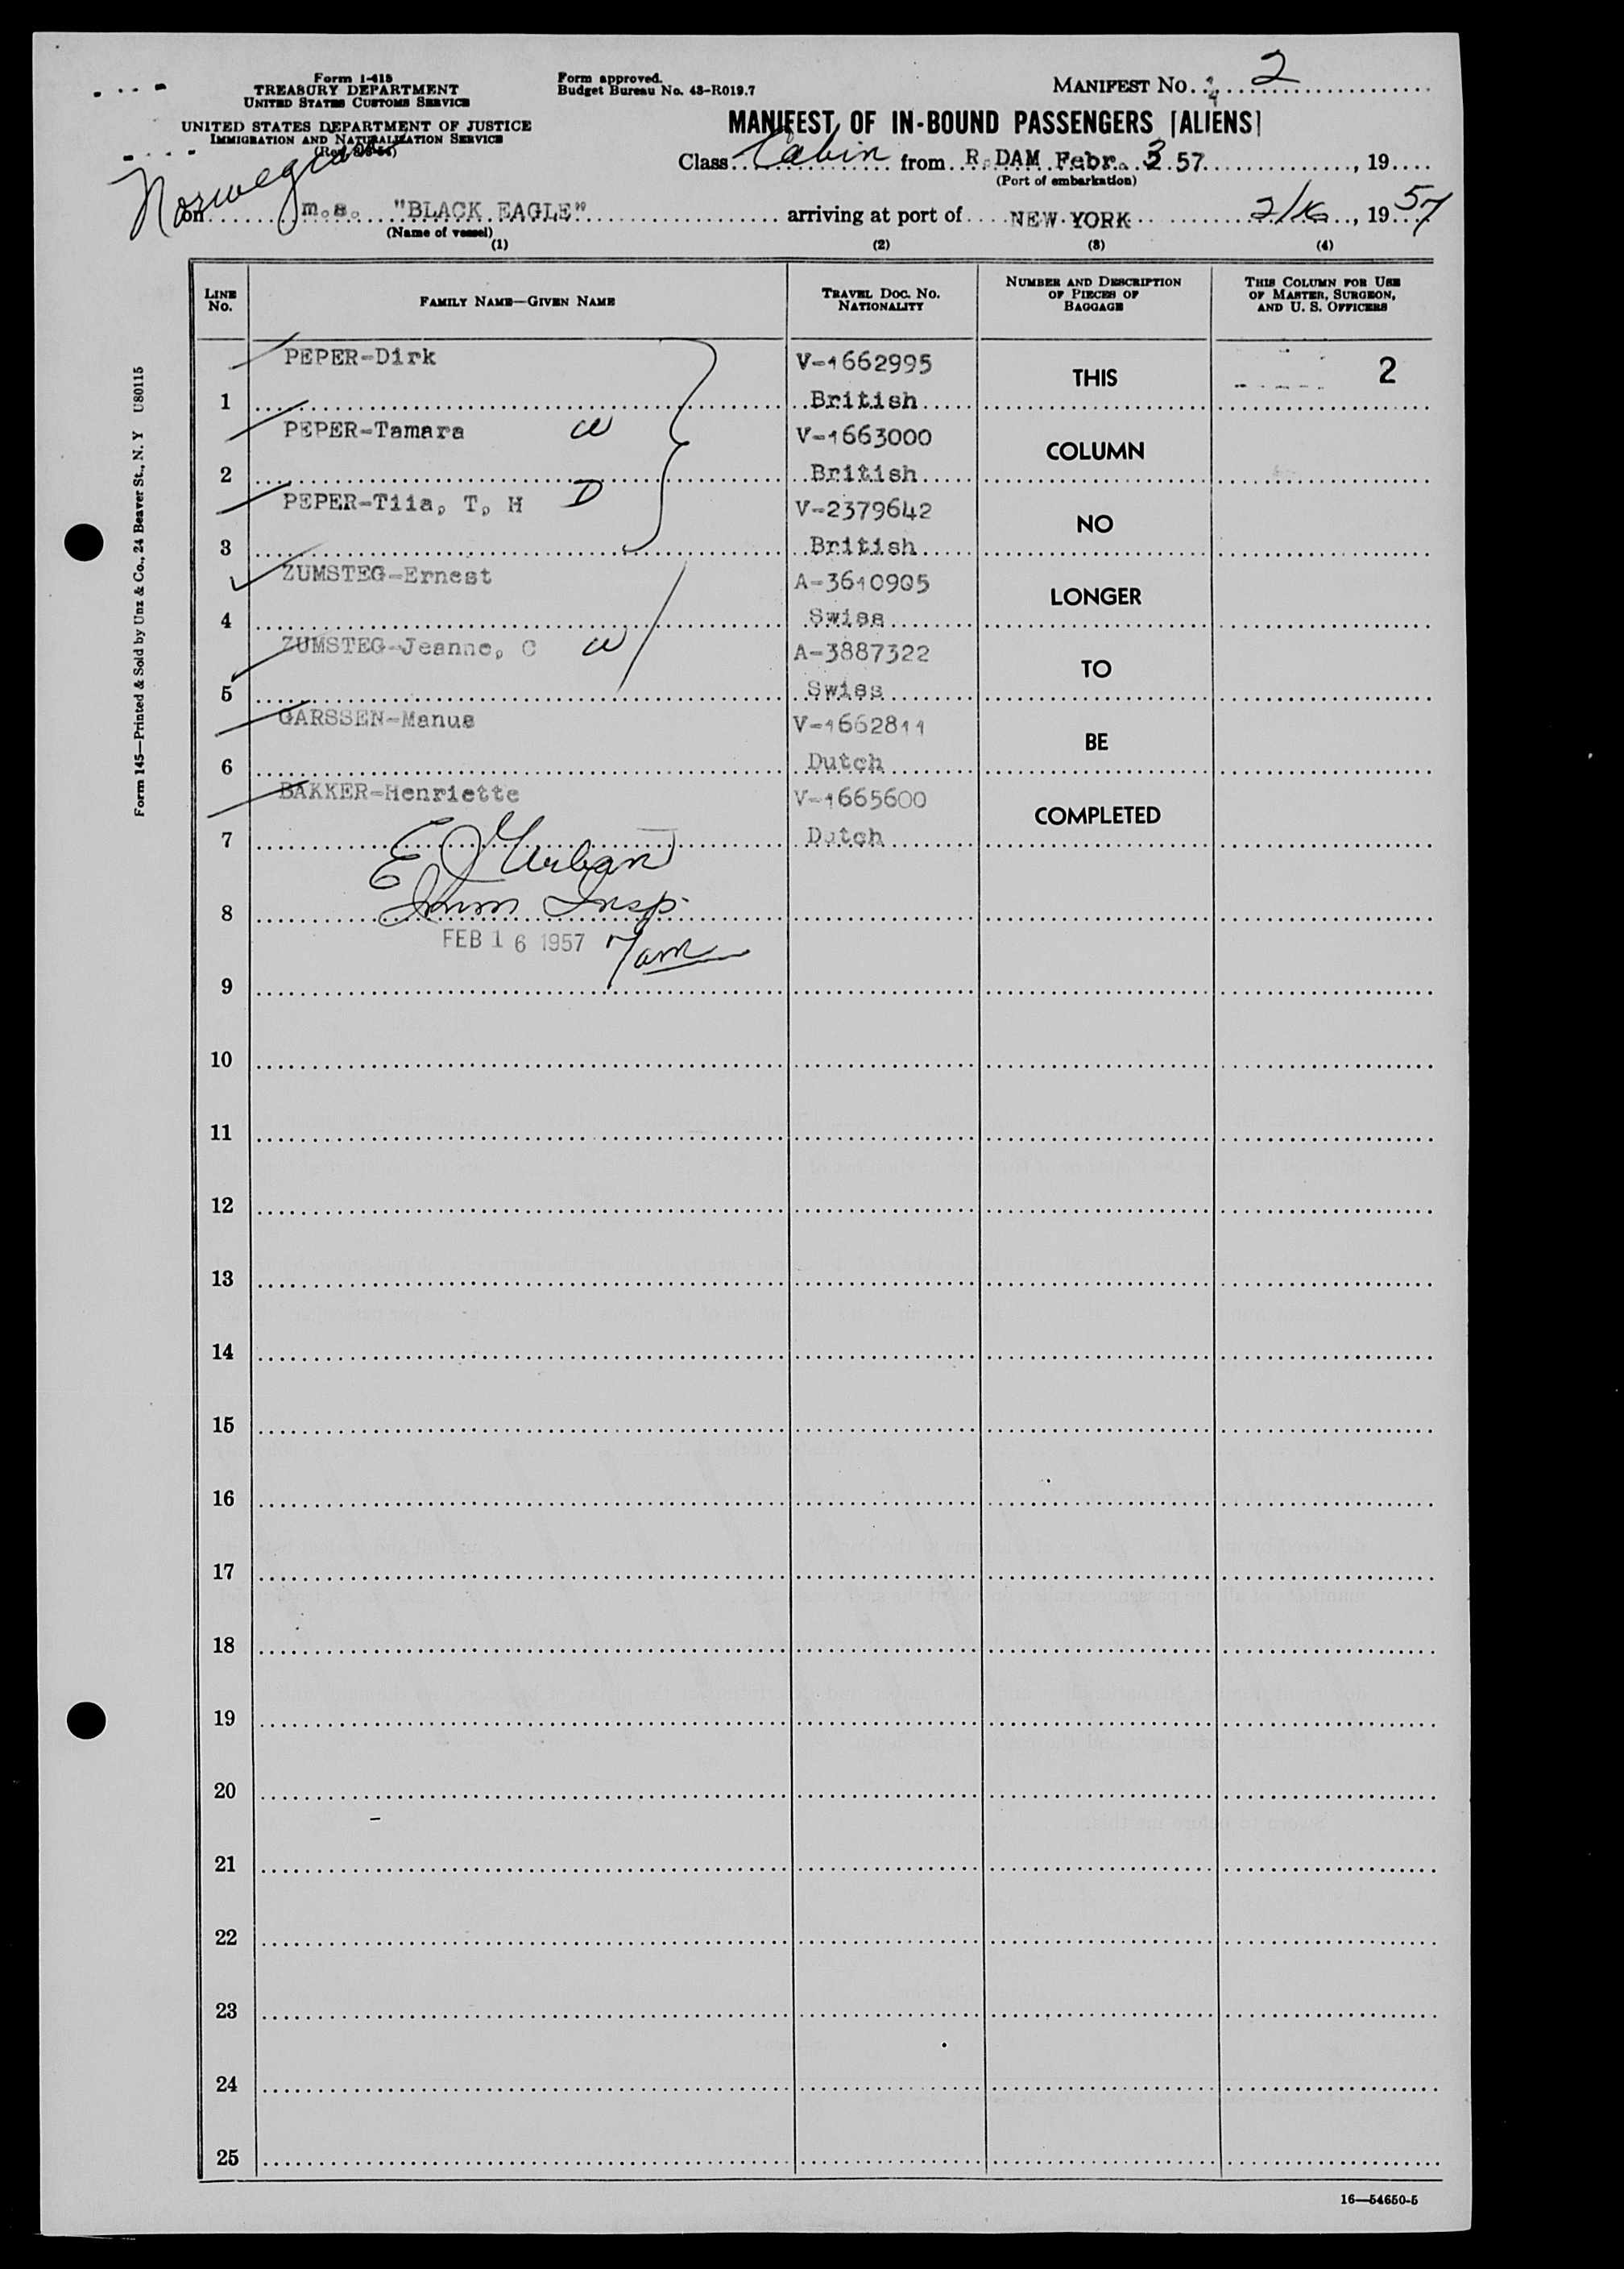 Form I-418
TREASURY DEPARTMENT
UNITED STATES CUSTOMS SERVICE
UNITED STATES DEPARTMENT OF JUSTICE
IMMIGRATION AND NATURALIZATION SERVICE
Form approved.
Budget Bureau No. 43-R019.7
MANIFEST No. 2
MANIFEST OF IN-BOUND PASSENGERS [ALIENS]
Class Cabin from R.DAM Febr. 3 57, 19
(Port of embarkation)
Norwegian
on m.s. "BLACK EAGLE" arriving at port of NEW YORK 2/16, 1957
(Name of vessel)
(1) (2) (3) (4)
LINE No.
FAMILY NAME—GIVEN NAME
TRAVEL DOC. NO. NATIONALITY
NUMBER AND DESCRIPTION OF PIECES OF BAGGAGE
THIS COLUMN FOR USE OF MASTER, SURGEON, AND U. S. OFFICERS
PEPER-Dirk V-1662995 THIS 2
1 British
PEPER-Tamara W V-1663000 COLUMN
2 British
PEPER-Tiia, T, H D V-2379642 NO
3 British
ZUMSTEG-Ernest A-3610905 LONGER
4 Swiss
ZUMSTEG-Jeanne, C W A-3887322 TO
5 Swiss
GARSSEN-Manus V-1662811 BE
6 Dutch
BAKKER-Henriette V-1665600 COMPLETED
7 Dutch
E J Urban
8 Imm Insp.
FEB 16 1957 7am
9
10
11
12
13
14
15
16
17
18
19
20
21
22
23
24
25
16—54650-5
Form 145—Printed & Sold by Unz & Co., 24 Beaver St., N. Y U80115